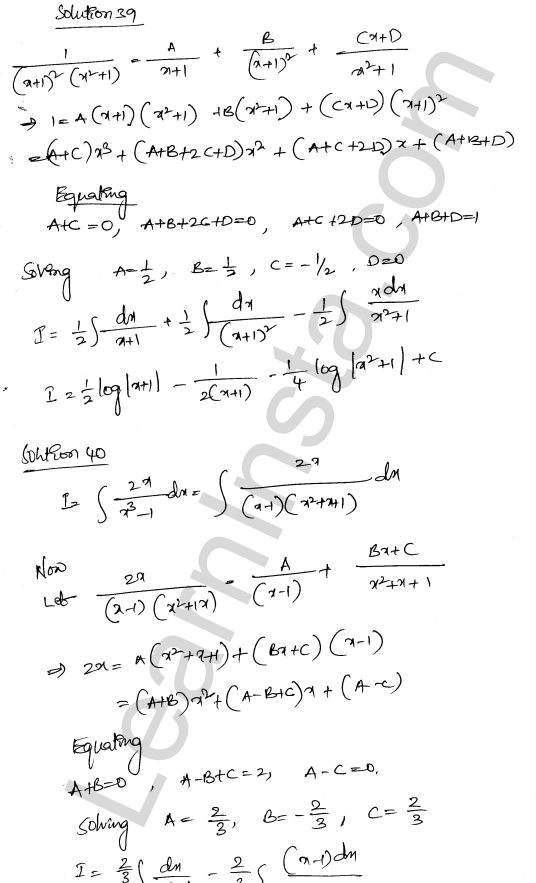 Solution 39
1/((x+1)² (x²+1)) = A/(x+1) + B/(x+1)² + (Cx+D)/(x²+1)
⇒ 1 = A(x+1)(x²+1) + B(x²+1) + (Cx+D)(x+1)²
= (A+C)x³ + (A+B+2C+D)x² + (A+C+2D)x + (A+B+D)
Equating
A+C=0, A+B+2C+D=0, A+C+2D=0, A+B+D=1
Solving A=1/2, B=1/2, C=-1/2, D=0
I = 1/2 ∫ dx/(x+1) + 1/2 ∫ dx/(x+1)² - 1/2 ∫ xdx/(x²+1)
I = 1/2 log|x+1| - 1/(2(x+1)) - 1/4 log|x²+1| + C
Solution 40
I = ∫ 2x/(x³-1) dx = ∫ 2x/((x-1)(x²+x+1)) dx
Now
Let 2x/((x-1)(x²+1x)) = A/(x-1) + (Bx+C)/(x²+x+1)
⇒ 2x = A(x²+x+1) + (Bx+C)(x-1)
= (A+B)x² + (A-B+C)x + (A-C)
Equating
A+B=0, A-B+C=2, A-C=0.
Solving A = 2/3, B = -2/3, C = 2/3
I = 2/3 ∫ dx - 2 ∫ (x-1)dx
LearnInsta.com